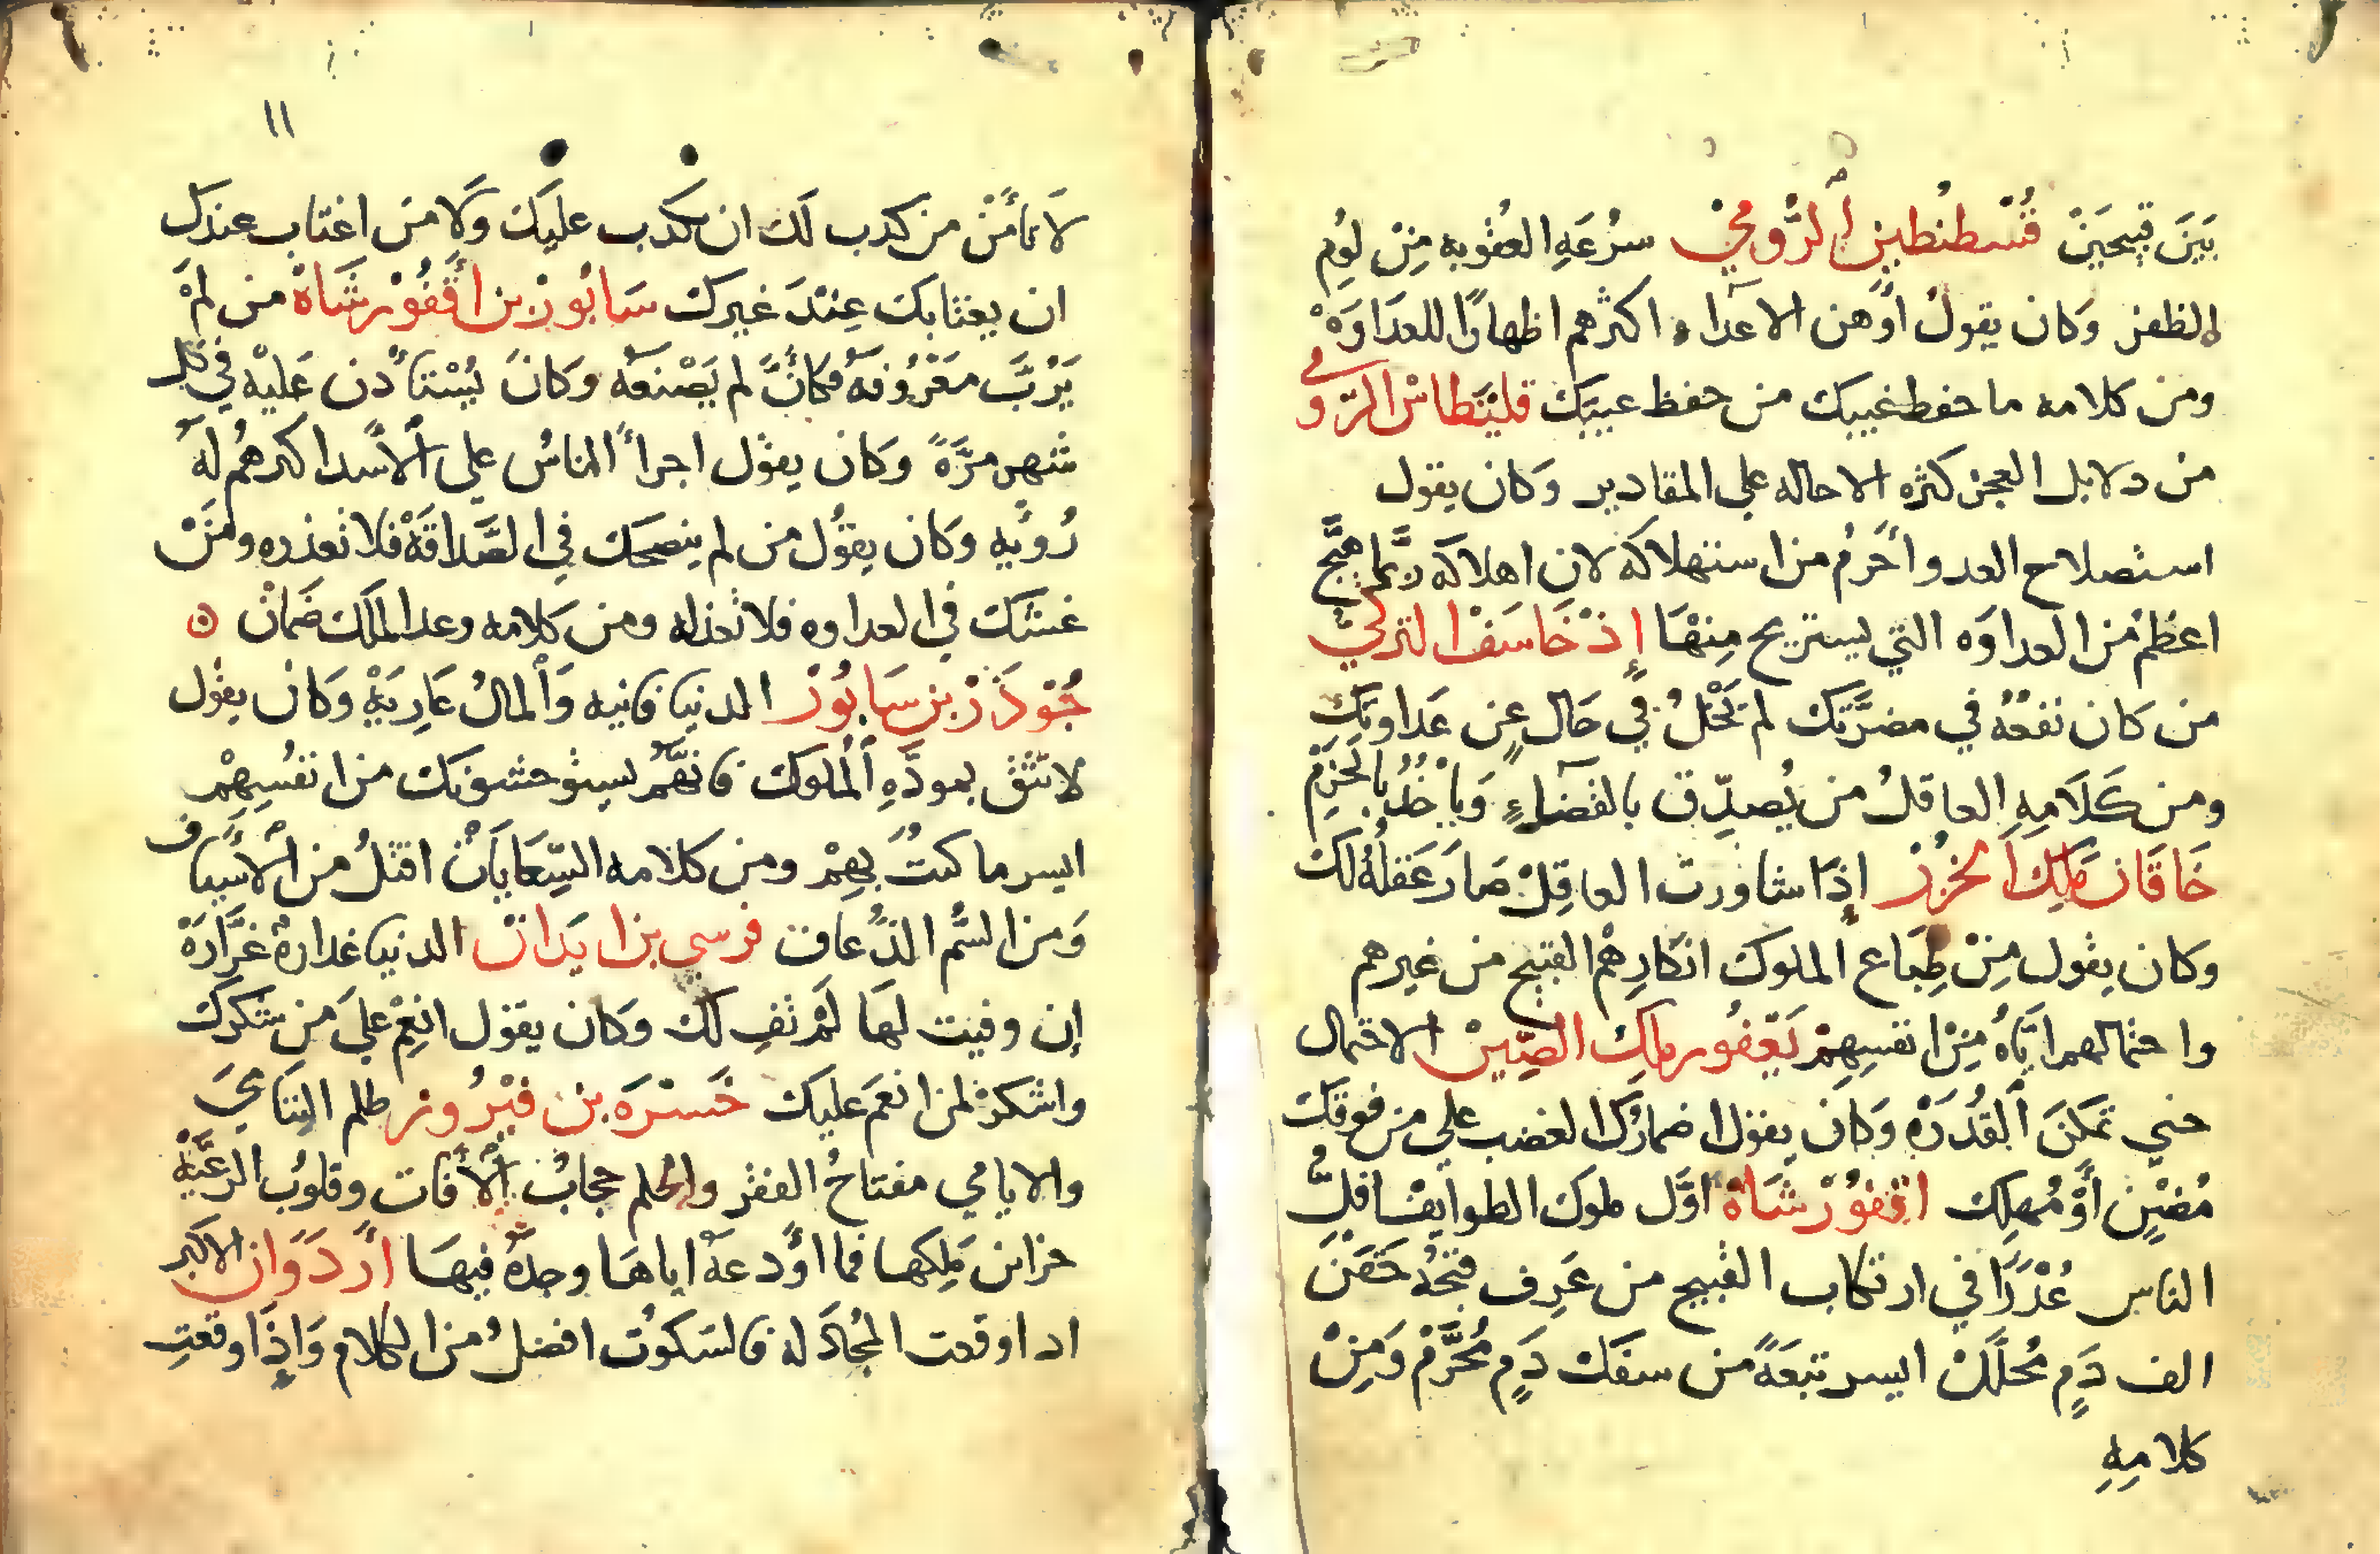 بَيَنَ قبيحَيَنْ قُسْطنْطين اَلرُّومِيْ سرُعَهِ العقوبه مِنْ لوُمِ
الظفر وَكان يقولُ اَوْهن الاعدآء اكثرهم اظهارًا للعدَاوَهْ
ومن كلامه ما حفظ غيبك من حفظ عيبَك قليْنَطاسْ الرّومي
من دلايل العجز كثره الاحاله على المقادير وَكان يقول
استصلاح العدو اَحَزمُ من استهلاكه لان اهلاكَه ربَّما هَيَّج
اعظمْ من العداوَه التي يستريح مِنهْا إِذْ خَاسَفْ التركيّ
من كان نفعُهُ في مضرَّتك لم يَخْلُ في حَال عن عَداوتك
ومن كَلَامِهِ العاقلُ من يُصدِّق بالقضآءِ وَيأخُذُ بالحَزمْ
خَاقَان مَلِكَ اَلخزرْ إِذَا شاورت العاقِلْ صَارَ عَقلُهُ لَك
وكان يقول مِنْ طِبَاع الملوك انكارِهمْ القبيح من غيرهم
واحتمالهم ايَّاهُ مِنْ انفسِهِمْ يَعْفُور ملِك الصِّينْ الاحتمال
حتي تمكنَ اَلقُدْرَهْ وَكان يقول اضمارُكَ الغضب على من فوقك
مُضْنٍ أَوْ مُهِلك اقفوُرْ شَاهْ اوّل ملوك الطوايفْ اقلّ
الناس عُذْرًا في ارتكاب القبيح من عَرِف قبحُهُ حَقنَ
الف دَمٍ مُحلَلَّ ايسر تبعَةً من سفك دَمٍ مُحَرَّمْ وَمِنْ
كلامِهِ
١١
لَا تامَنْ من كذب لَك ان يكذب عليَك وَلا منَ اغتاب عندك
ان يغتابك عِندَ غيرك سَابُورْ بن اَقْفُوْرشَاهْ من لمْ
يَرُبَّ معَرُوفهُ فكأنَّه لم يَصْنعهُ وَكانَ يُسْتأذن عَليْه في كل
شهر مرَّةً وَكان يقول اجرأ الناسُ على اَلاسَد اكثرهمُ لَه
رُؤيه وَكان يقوُل من لم ينصحك في الصَّداقَهْ فلا تعذره ومَنْ
غشك في العداوه فلا تعذله ومن كلامه وعد الملَك ضَمانْ ن
جُوْدَرْز بن سَابُورْ الدنيا فانيه وَالمالُ عَارِيَةٍ وَكان يقول
لا تثق بموَدَّهِ اَلملوك فانهمُ يستوحشونك من انفُسِهِمْ
ايسر ما كنتُ بِهِمْ ومن كلامه السِّعَايَاَتْ اقتلُ من اَلاسْيَاف
وَمن السُّم الذُعاف نرسي بن ايرَانْ الدنيا غدارةْ غرَّارَهْ
إِن وفيت لهَا لَمْ تفِ لكَ وَكان يقول انعِمْ علىَ مَن شكرك
واشكرْ لمن انعَم عليَك خَسْرَه بن فيْرُوز ظلم اليتَامَي
والايامي مفتاحُ الفقر والحلم حجابُ اَلافات وقلوبُ الرعيَّهْ
خزاين مَلِكها فما اَوْدعهُ اياهَا وجدَهُ فيهَا اَرْدَوَان الاكبر
اذا وقعت المُجادَله فالسَكوُت افضلُ من الكلام وَاذَا وقعتِ